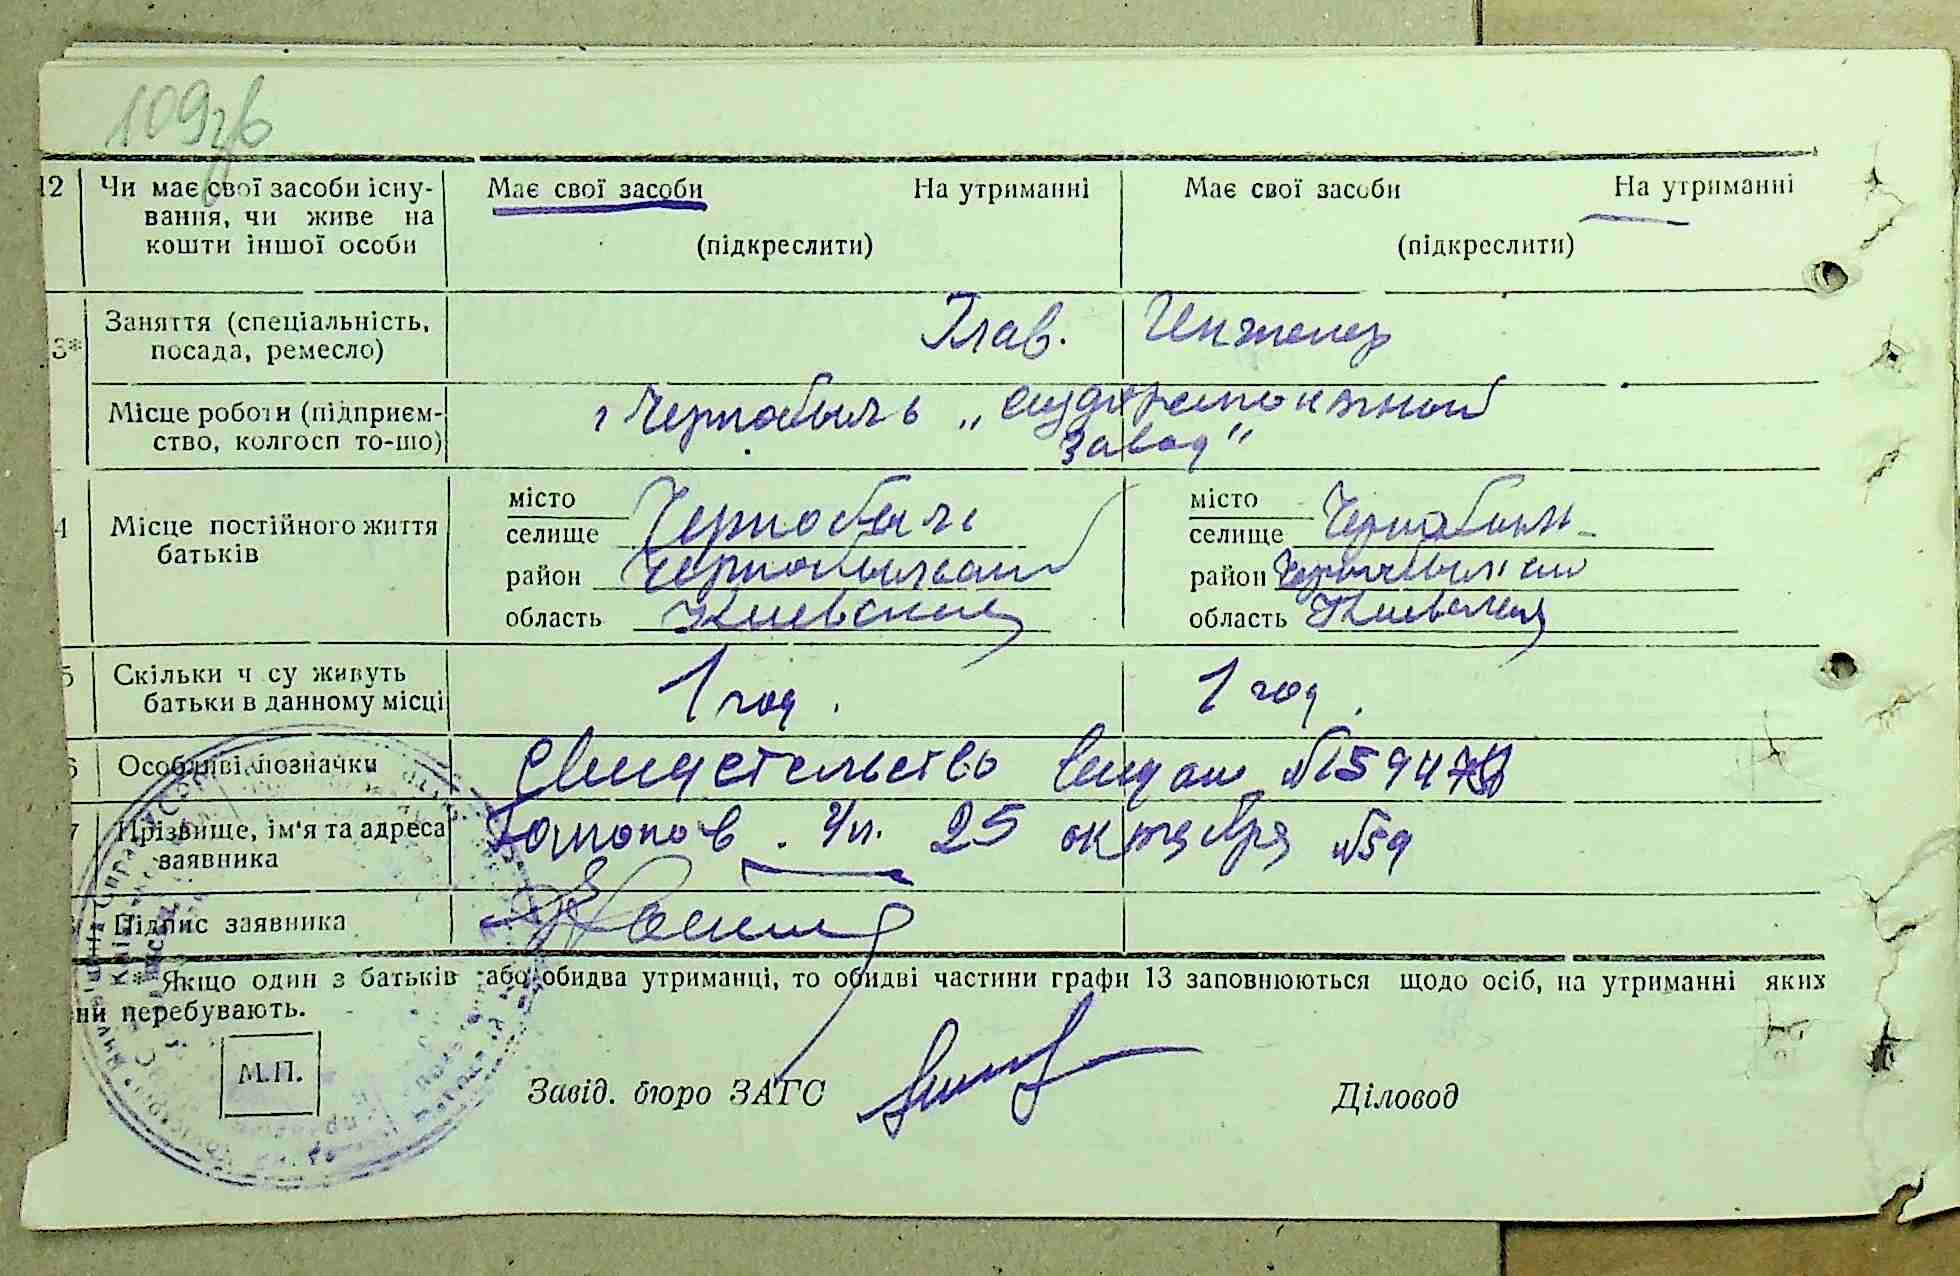 109зв
12 Чи має свої засоби існу- Має свої засоби На утриманні Має свої засоби На утриманні
вання, чи живе на
кошти іншої особи (підкреслити) (підкреслити)
3* Заняття (спеціальність, Глав. Инженер
посада, ремесло)
Місце роботи (підприєм- г Чернобыль „судоремонтный
ство, колгосп то-що) завод"
4 Місце постійного життя місто Чернобыль місто Чернобыль
батьків селище селище
район Чернобыльский район Чернобыльский
область Киевская область Киевская
5 Скільки ч су живуть 1 год. 1 год.
батьки в данному місці
6 Особливі позначки Свидетельство выдан №
7 Прізвище, ім'я та адреса ул. 25 октября №59
заявника
Підпис заявника
* Якщо один з батьків або обидва утриманці, то обидві частини графи 13 заповнюються щодо осіб, на утриманні яких
ни перебувають.
М.П. Завід. бюро ЗАГС Діловод